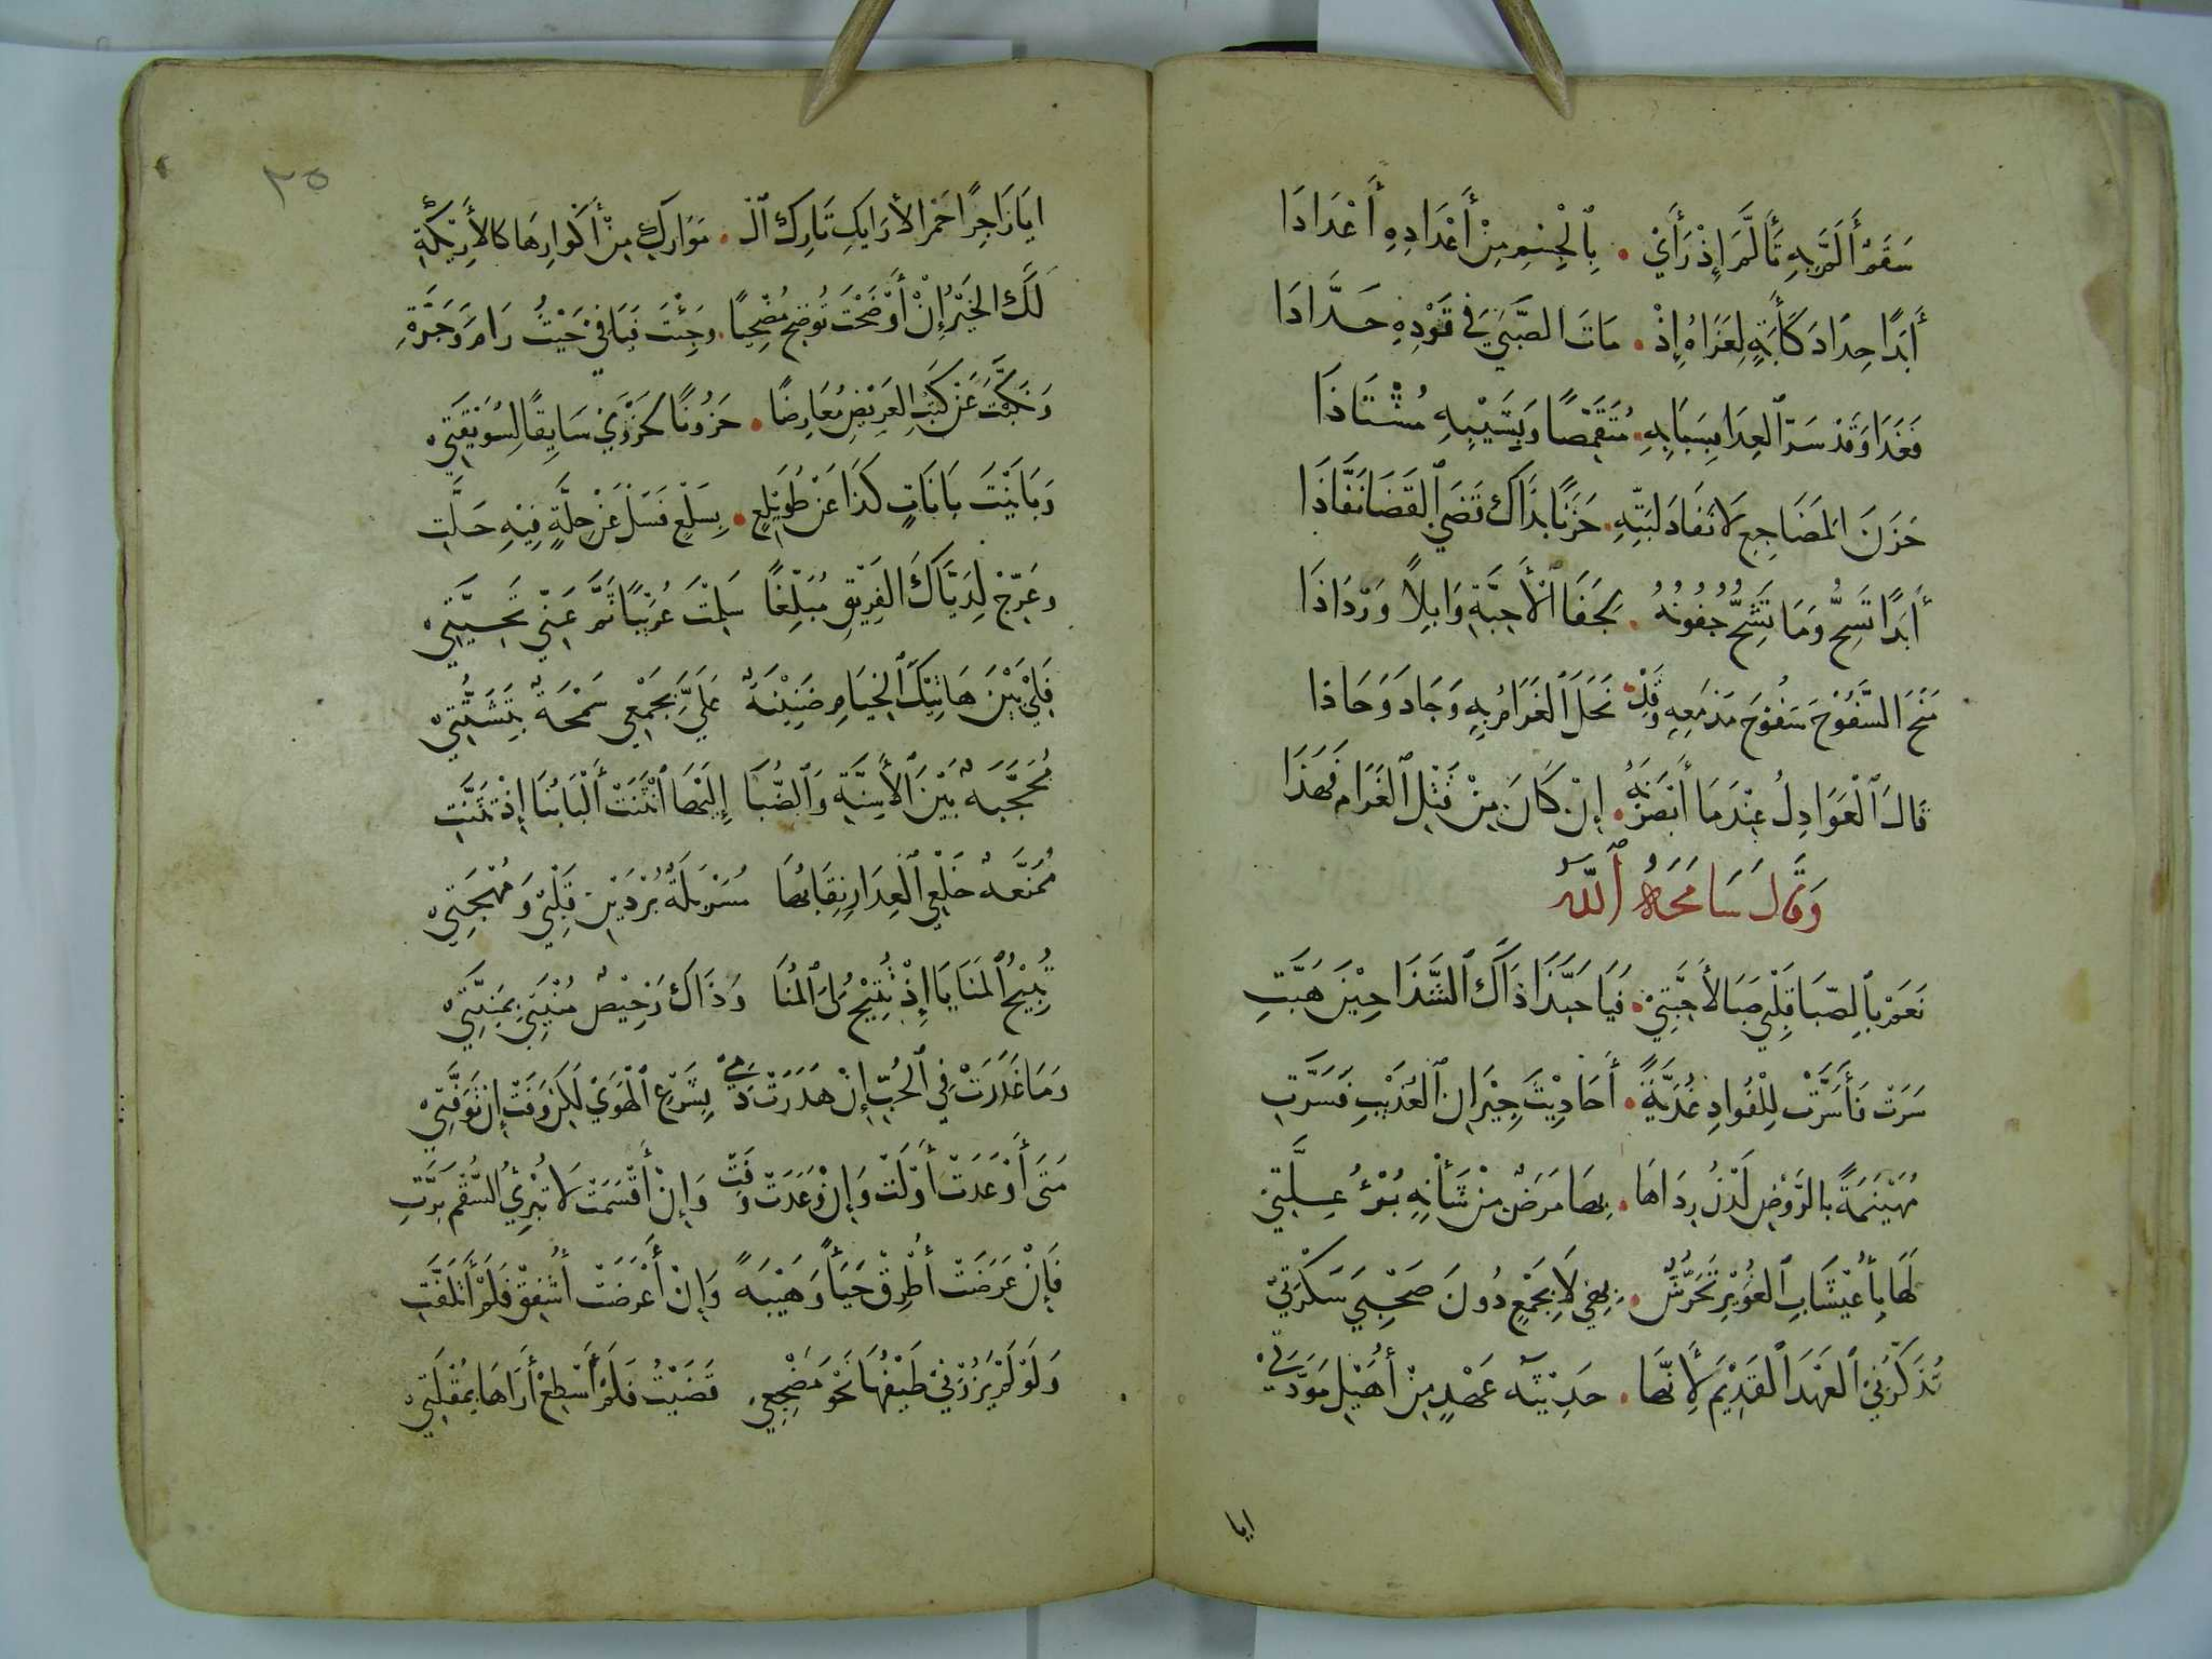 سَقَمٌ أَلَمَّ بِهِ تَأَلَّمَ إِذْ رَأَيْ . بِٱلْجِسْمِ مِنْ أَغْدَادِهِ أَغْدَادَا
أَبَدًا حِدَادَ كَأَبَةٍ لِعَزَاهُ إِذْ . مَاتَ الصَّبَى فِي فَوْدِهِ جَدَّادَا
فَغَدَا وَقَدْ سَرَّ ٱلْعِدَا بِشَبَابِهِ . مُتَقَمِّصًا وَبِشَيْبِهِ مُشْتَاذَا
حَزَنَ المَضَاجِعِ لَا نَفَادَ لِبَثِّهِ . حَزَنًا بِذَاكَ قَضَى ٱلْقَضَا نَفَّاذَا
أَبَدًا تَسِحُّ وَمَا تَشِحُّ جُفُونُهُ . لِجَفَا ٱلْأَحِبَّةِ وَابِلًا وَرَذَاذَا
مَنَحَ السُّفُوحَ سُفُوحَ مَدْمَعِهِ وَقَدْ . بَخِلَ ٱلْغَمَامُ بِهِ وَجَادَ وَجَاذا
قَالَ ٱلْعَوَايِدُ عِنْدَمَا أَبْصَرْنَهُ . إِنْ كَانَ مِنْ قَتْلِ ٱلْغَرَامِ فَهَذَا
وَقَالَ سَامَحَهُ ٱللَّهُ
نَعَمْ بِٱلصَّبَا قَلْبِي صَبَا لِأَحِبَّتِيْ . فَيَا حَبَّذَا ذَاكَ ٱلشَّذَا حِيْنَ هَبَّتِ
سَرَتْ فَأَسَرَّتْ لِلْفُوَادِ غُدَيَّةً . أَحَادِيْثَ جِيْرَانِ ٱلْعُذَيْبِ فَسَرَّتِ
مُهَيْنِمَةً بِالرَّوْضِ لَدْنٌ رِدَاهَا . بِهَا مَرَضٌ مِنْ شَأْنِهِ بُرْءُ عِلَّتِيْ
لَهَا بِأُعَيْشَابِ ٱلْغُوَيْرِ تَحَرُّشٌ . بِهِ لَا بِخَمْرٍ دُونَ صَحْبِيَ سَكْرَتِيْ
تُذَكِّرُنِيْ ٱلْعَهْدَ ٱلْقَدِيْمَ لِأَنَّهَا . حَدِيْثَةُ عَهْدٍ مِنْ أُهَيْلِ مَوَدَّتِيْ
ايا
٢٥
ايَا زَاجِرًا حُمْرَ الأَرَايِكِ تَارِكَ ٱلْـ . مَوَارِكِ مِنْ أَكْوَارِهَا كَالأَرِيْكَةِ
لَكَ الخَيْرُ إِنْ أَوْضَحْتَ تُوضِحَ مُضْحِيًا . وَجِئْتَ فَيَافِيْ خَبْتِ رَامَ وَجَرَّةِ
وَنَكَّبْتَ عَنْ كُثُبِ العَرِيْضِ مُعَارِضًا . حَزُونًا لِحَزْوَيْ سَايِقًا لِسُوَيْقَتِيْ
وَبَايَنْتَ بَانَاتٍ كَذَا عَنْ طُوَيْلِعٍ . بِسَلْعٍ فَسَلْ عَنْ حِلَّةٍ فِيْهِ حَلَّتِ
وَعَرِّجْ لِذَيَّاكَ الفَرِيْقِ مُبَلِّغًا سَلِمْتَ عُرَيْبًا ثَمَّ عَنِّي تَحِيَّتِيْ
فَلِيْ بَيْنَ هَاتِيْكَ ٱلْخِيَامِ ضَنِيْنَةٌ عَلَيَّ بِجَمْعِي سَمْحَةٌ بِتَشَتُّتِيْ
مُحَجَّبَةٌ بَيْنَ ٱلْأَسِنَّةِ وَٱلظُّبَا إِلَيْهَا ٱنْثَنَتْ أَلْبَابُنَا إِذْ تَثَنَّتِ
مُمَنَّعَةٌ خَلْعُ ٱلْعِذَارِ نِقَابُهَا مُسَرْبَلَةٌ بُرْدَيْنِ قَلْبِيْ وَمُهْجَتِيْ
تُبِيْحُ ٱلْمَنَايَا إِذْ تُتِيْحُ لِيَ ٱلْمُنَا وَذَاكَ رَخِيْصٌ مُنْيَتِيْ بِمَنِيَّتِيْ
وَمَا غَدَرَتْ فِي ٱلْحُبِّ إِنْ هَدَرَتْ دَمِيْ بِشَرْعِ ٱلْهَوَيْ لَكِنْ وَفَتْ إِنْ تَوَفَّتِيْ
مَتَى أَوْعَدَتْ أَوْلَتْ وَإِنْ وَعَدَتْ وَفَتْ وَإِنْ أَقْسَمَتْ لَا تُبْرِئُ السُّقْمَ بَرَّتِ
فَإِنْ عَرَضَتْ أُطْرِقْ حَيَاءً وَهَيْبَةً وَإِنْ أَعْرَضَتْ أُشْفِقْ فَلَمْ أَتَلَفَّتِ
وَلَوْ لَمْ يَزُرْنِيْ طَيْفُهَا نَحْوَ مَضْجَعِي قَضَيْتُ فَلَمْ أَسْطِعْ أَرَاهَا بِمُقْلَتِيْ